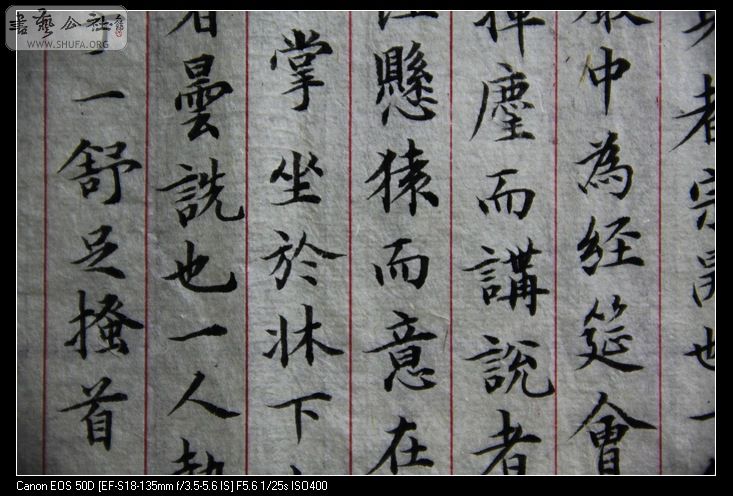 書藝公社
WWW.SHUFA.ORG
者宗昺也一
中為經筵會
揮麈而講說者
懸猿而意在
掌坐於牀下
者曇詵也一人執
一舒足搔首
Canon EOS 50D [EF-S18-135mm f/3.5-5.6 IS] F5.6 1/25s ISO400